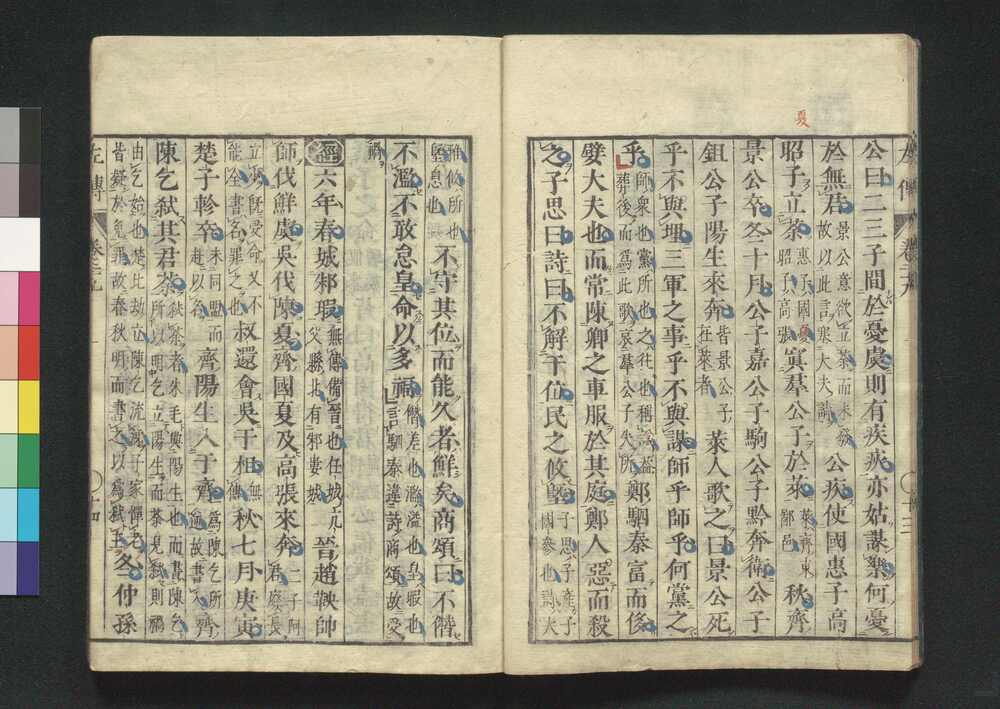 夏
公曰二三子間於憂虞則有疾疢亦姑謀樂何憂
於無君景公意欲立荼而未發故以此言塞大夫請公疾使國惠子高
昭子立荼惠子國夏昭子高張寘羣公子於萊萊齊東鄙邑秋齊
景公卒冬十月公子嘉公子駒公子黔奔衞公子
鉏公子陽生來奔皆景公子在萊者萊人歌之曰景公死
乎不與埋三軍之事乎不與謀師乎師乎何黨之
乎師衆也黨所也之往也稱謚蓋葬後而爲此歌哀羣公子失所鄭駟秦富而侈
嬖大夫也而常陳卿之車服於其庭鄭人惡而殺
之子思曰詩曰不解于位民之攸墍子思子產子國參也詩大
雅攸所也墍息也不守其位而能久者鮮矣商頌曰不僭
不濫不敢怠皇命以多福僭差也濫溢也皇暇也言駟秦違詩商頌故受
禍
經六年春城邾瑕無傳備晉也任城亢父縣北有邾婁城晉趙鞅帥
師伐鮮虞吳伐陳夏齊國夏及高張來奔二子阿君廢長
立少既受命又不能全書名罪之也叔還會吳于柤無傳秋七月庚寅
楚子軫卒未同盟而赴以名齊陽生入于齊爲陳乞所逆故書入齊
陳乞弒其君荼弒荼者朱毛與陽生也而書陳乞所以明乞立陽生而荼見弒則禍
由乞始也楚比劫立陳乞流涕子家憚老皆疑於免罪故春秋明而書之以爲弒主冬仲孫
左傳 卷二十九 十四